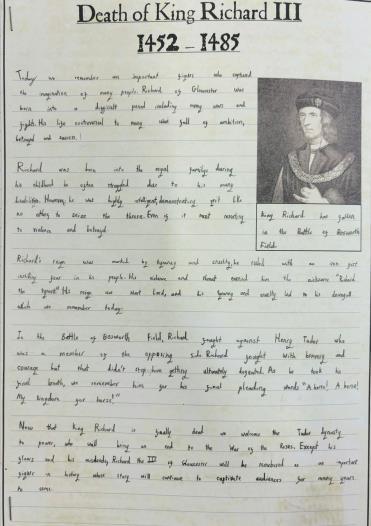 Death of King Richard III
1452 - 1485
Today we remember an important figure who captured
the imagination of many people. Richard of Gloucester was
born into a difficult period including many wars and
fights. His life controversial to many was full of ambition,
betrayal and success.
Richard was born into the royal family during
his childhood he often struggled due to his many
disabilities. However, he was highly intelligent, demonstrating just like
no others to seize the throne. Even if it meant resorting
to violence and betrayal.
King Richard has fallen
in the Battle of Bosworth
Field.
Richard's reign was marked by tyranny and cruelty, he ruled with an iron fist
instilling fear in his people. His violence and threat earned him the nickname "Richard
the tyrant" His reign was short lived, and his tyranny and cruelty led to his downfall
which we remember today.
In the Battle of Bosworth Field, Richard fought against Henry Tudor who
was a member of the opposing side. Richard fought with bravery and
courage but that didn't stop him getting ultimately defeated. As he took his
final breath, we remember him for his final pleading words "A horse! A horse!
My kingdom for horse!"
Now that King Richard is finally dead we welcome the Tudor dynasty
to power, who will bring an end to the War of the Roses. Except his
flaws and his misdeeds, Richard the III of Gloucester will be remembered as an important
figure in history whose story will continue to captivate audiences for many years
to come.